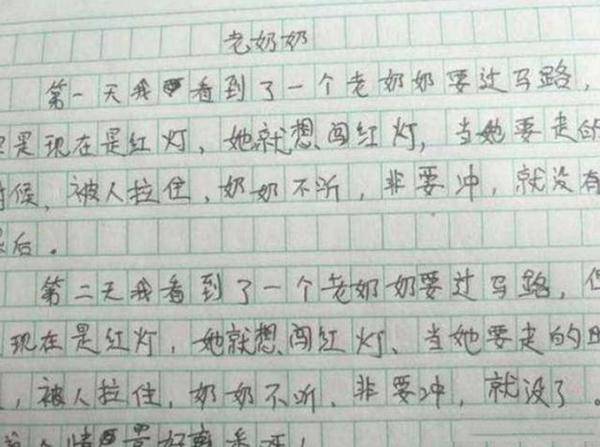 老奶奶
第一天我看到了一个老奶奶要过马路，
是现在是红灯，她就想闯红灯，当她要走的
时候，被人拉住，奶奶不听，非要冲，就没有
后。
第二天我看到了一个老奶奶要过马路，但
现在是红灯，她就想闯红灯、当她要走的时
，被人拉住，奶奶不听、非要冲，就没了。